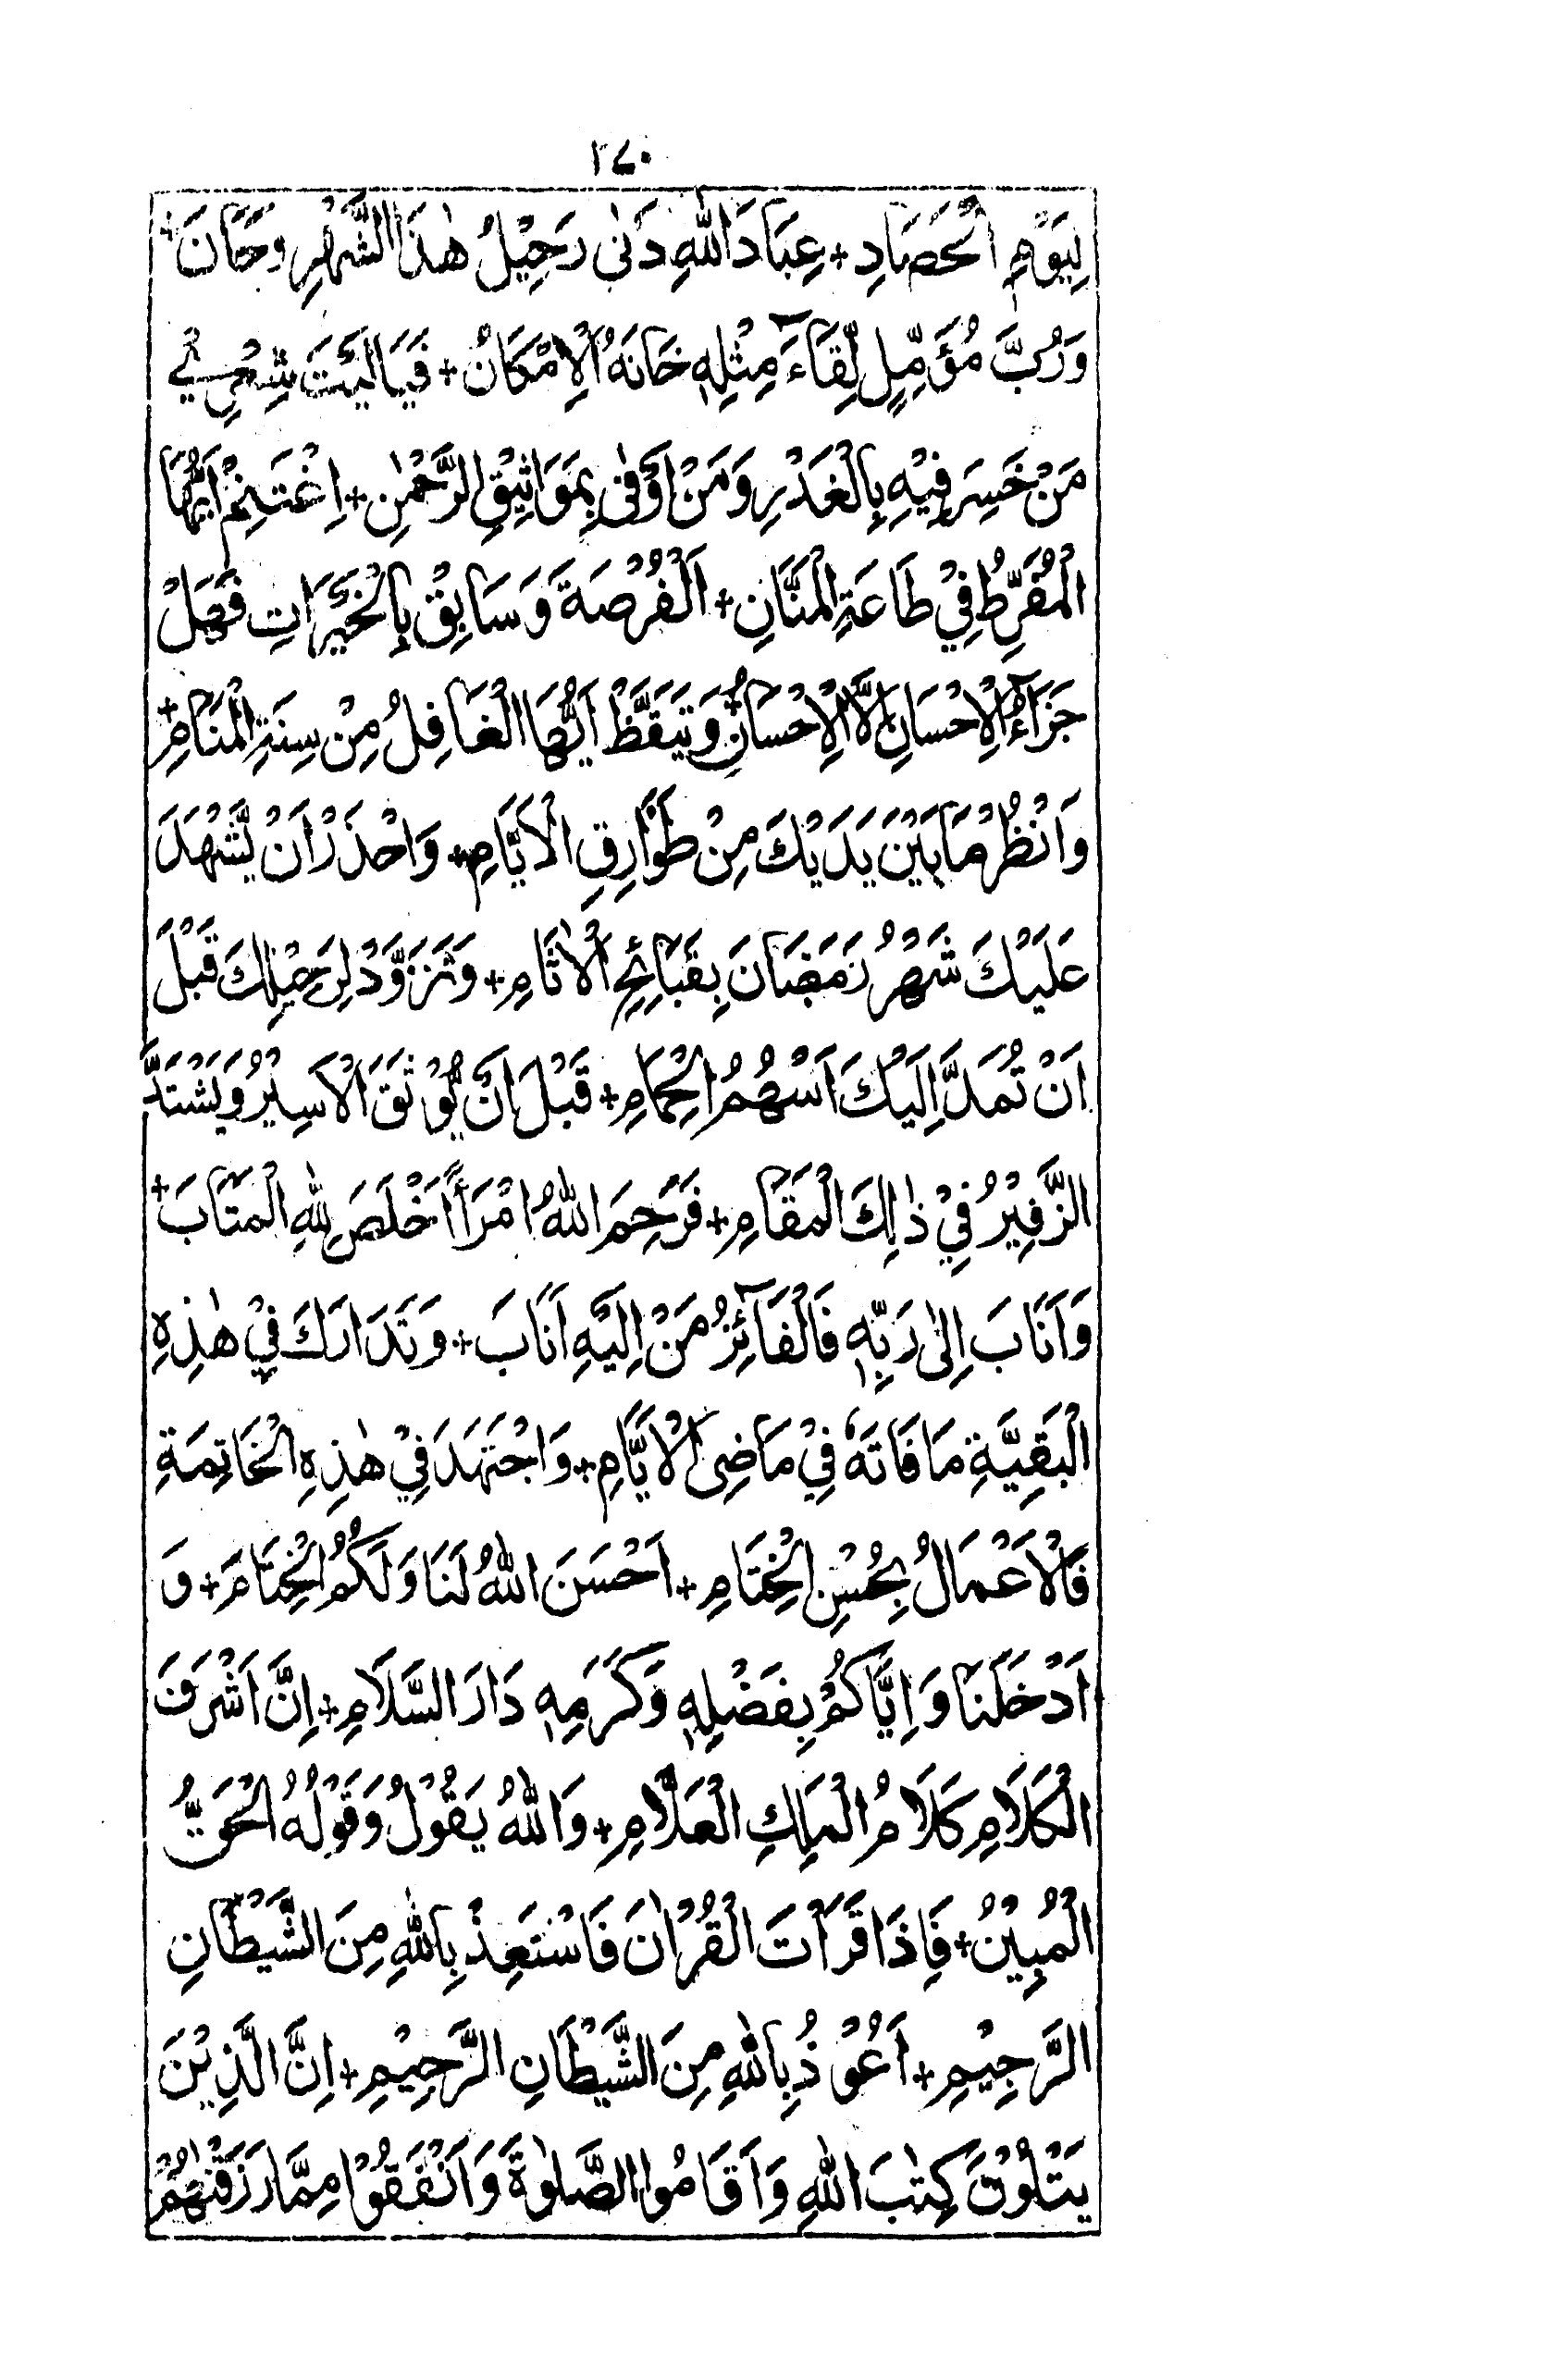 ٢٧٠
لِيَوْمِ الْحَصَادِ + عِبَادَ اللّٰهِ دَنٰى رَحِيْلُ هٰذَا الشَّهْرِ وَحَانَ +
وَرُبَّ مُؤَمِّلٍ لِّقَآءَ مِثْلِهٖ خَانَهُ الْاِمْكَانُ + فَيَا لَيْتَ شِعْرِيْ
مَنْ خَسِرَ فِيْهِ بِالْغَدْرِ وَمَنْ اَوْفٰى بِمَوَاثِيْقِ الرَّحْمٰنِ + اِغْتَنِمْ اَيُّهَا
الْمُفَرِّطُ فِيْ طَاعَةِ الْمَنَّانِ + اَلْفُرْصَةَ وَسَابِقْ بِالْخَيْرَاتِ فَهَلْ
جَزَآءُ الْاِحْسَانِ اِلَّا الْاِحْسَانُ + وَتَيَقَّظْ اَيُّهَا الْغَافِلُ مِنْ سِنَةِ الْمَنَامِ +
وَانْظُرْ مَا بَيْنَ يَدَيْكَ مِنْ طَوَارِقِ الْاَيَّامِ + وَاحْذَرْ اَنْ يَّشْهَدَ
عَلَيْكَ شَهْرُ رَمَضَانَ بِقَبَائِحِ الْاٰثَامِ + وَتَزَوَّدْ لِرَحِيْلِكَ قَبْلَ
اَنْ تُمَدَّ اِلَيْكَ اَسْهُمُ الْحِمَامِ + قَبْلَ اَنْ يُّوْثَقَ الْاَسِيْرُ وَيَشْتَدَّ
الزَّفِيْرُ فِيْ ذٰلِكَ الْمَقَامِ + فَرَحِمَ اللّٰهُ امْرَأً اَخْلَصَ لِلّٰهِ الْمَتَابَ +
وَاَنَابَ اِلٰى رَبِّهٖ فَالْفَآئِزُ مَنْ اِلَيْهِ اَنَابَ + وَتَدَارَكَ فِيْ هٰذِهِ
الْبَقِيَّةِ مَا فَاتَهٗ فِيْ مَاضِى الْاَيَّامِ + وَاجْتَهَدَ فِيْ هٰذِهِ الْخَاتِمَةِ
فَالْاَعْمَالُ بِحُسْنِ الْخِتَامِ + اَحْسَنَ اللّٰهُ لَنَا وَلَكُمُ الْخِتَامَ + وَ
اَدْخَلَنَا وَاِيَّاكُمْ بِفَضْلِهٖ وَكَرَمِهٖ دَارَ السَّلَامِ + اِنَّ اَشْرَفَ
الْكَلَامِ كَلَامُ الْمَلِكِ الْعَلَّامِ + وَاللّٰهُ يَقُوْلُ وَقَوْلُهُ الْحَقُّ
الْمُبِيْنُ + فَاِذَا قَرَأْتَ الْقُرْاٰنَ فَاسْتَعِذْ بِاللّٰهِ مِنَ الشَّيْطَانِ
الرَّجِيْمِ + اَعُوْذُ بِاللّٰهِ مِنَ الشَّيْطَانِ الرَّجِيْمِ + اِنَّ الَّذِيْنَ
يَتْلُوْنَ كِتٰبَ اللّٰهِ وَاَقَامُوا الصَّلٰوةَ وَاَنْفَقُوْا مِمَّا رَزَقْنٰهُمْ